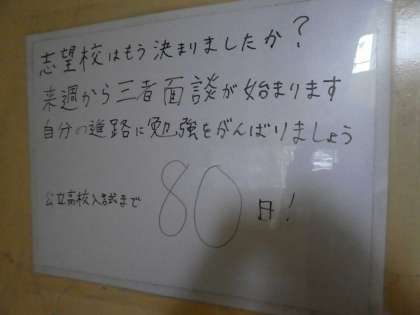 志望校はもう決まりましたか?
来週から三者面談が始まります
自分の進路に勉強をがんばりましょう
公立高校入試まで 80 日!